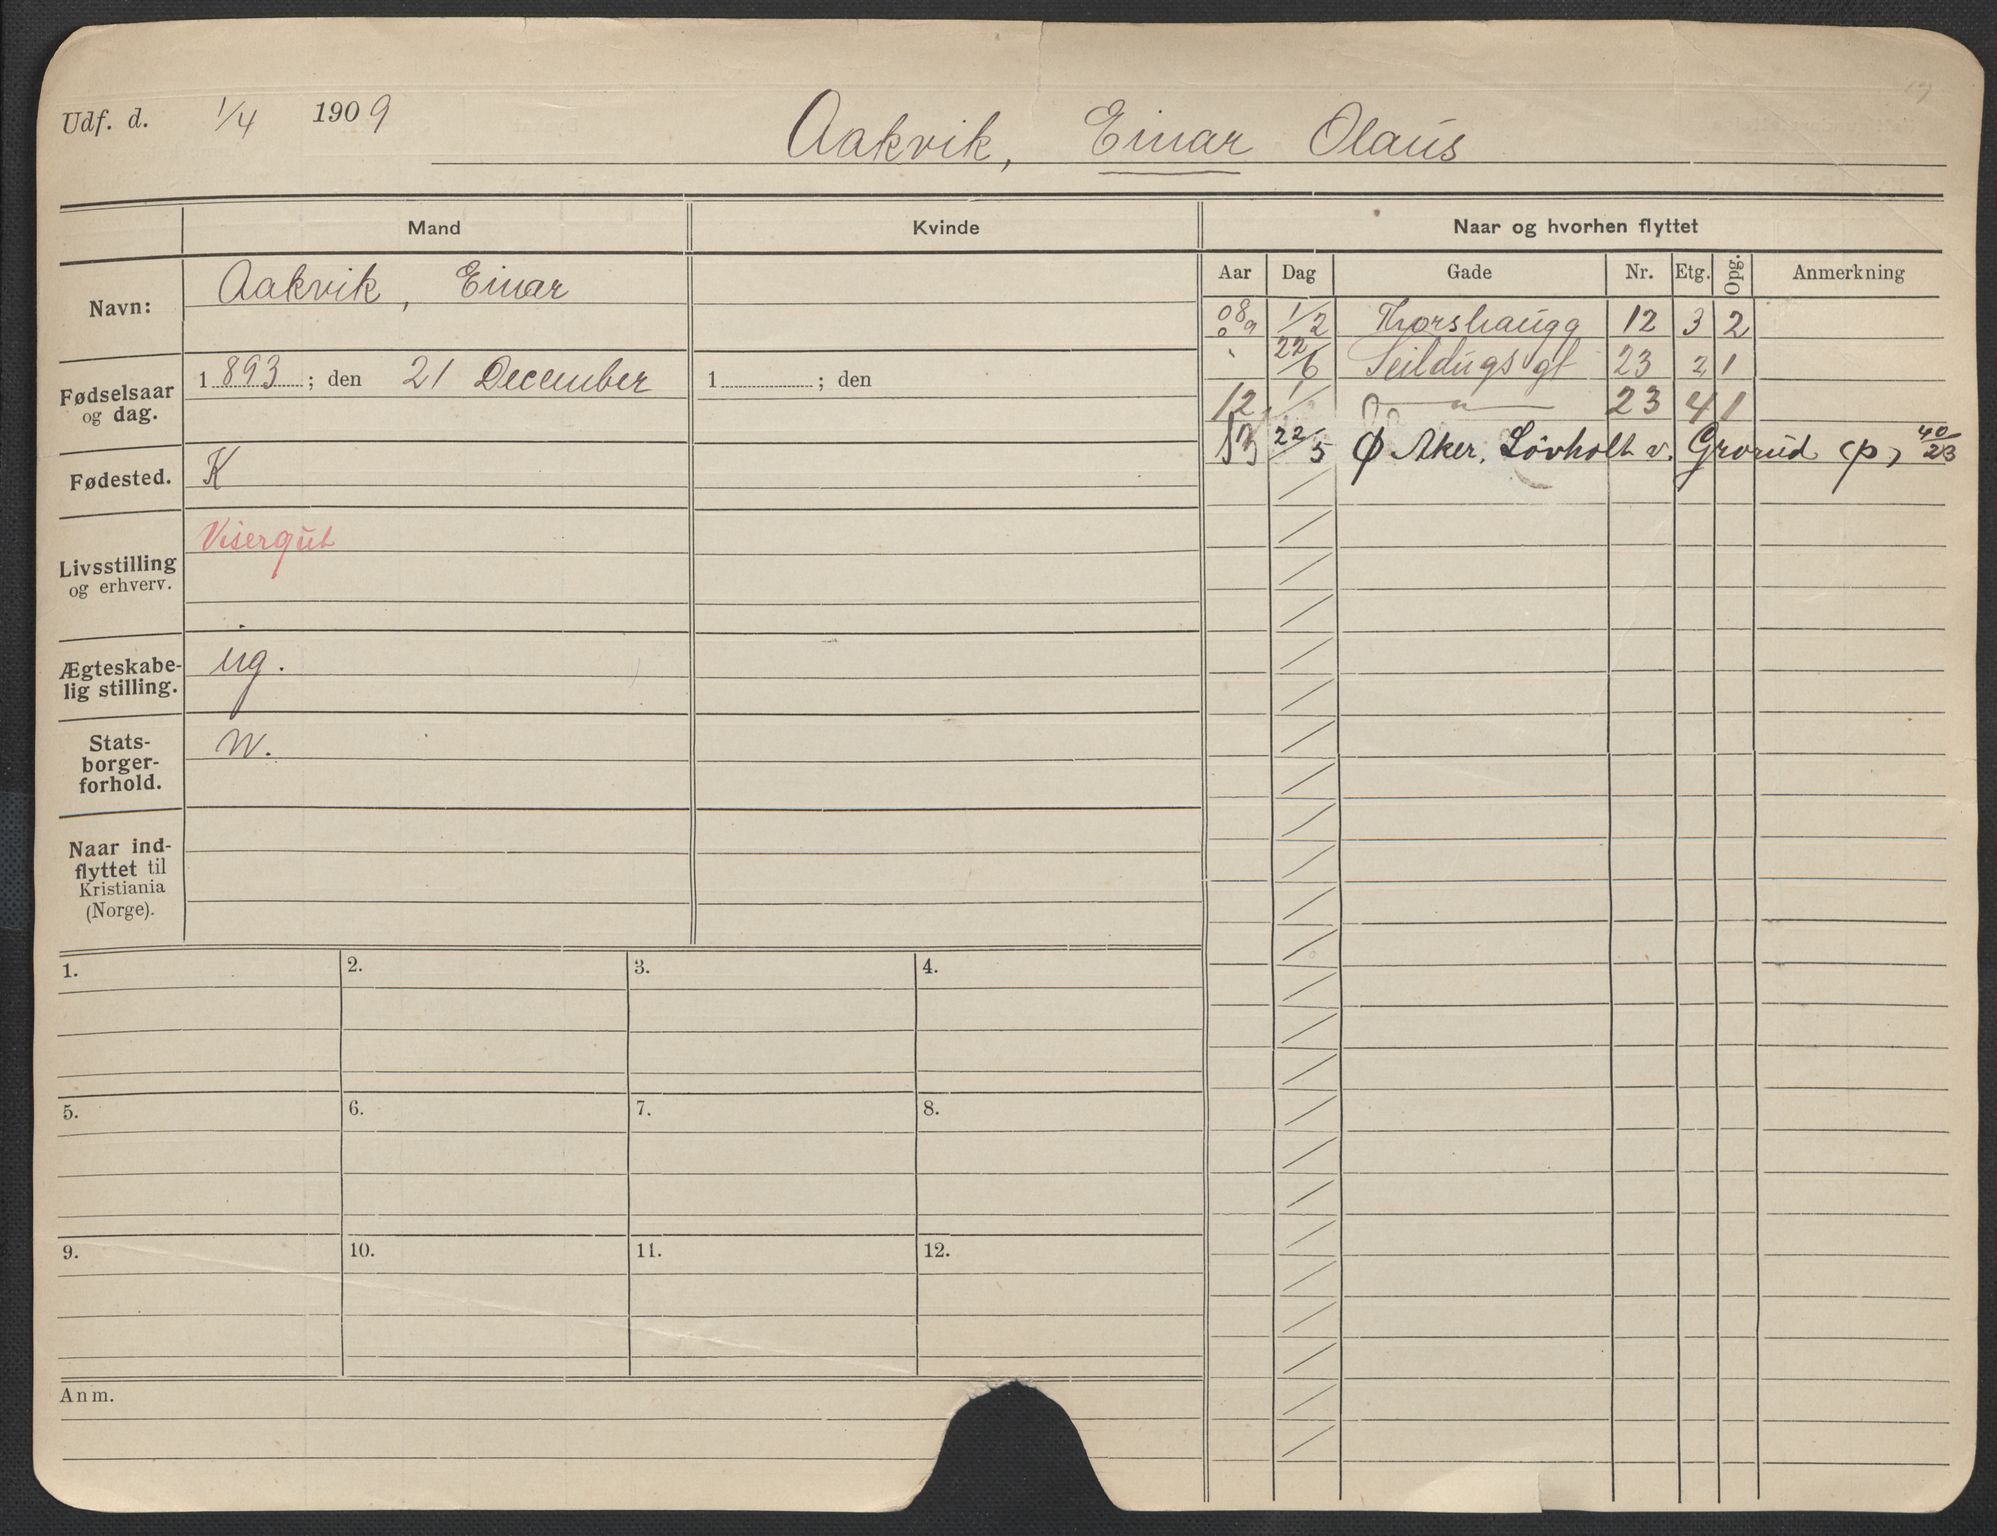 Udf. d. 1/4 1909
Aakvik, Einar Olaus
Mand
Kvinde
Navn:
Aakvik, Einar
Fødselsaar
og dag.
1893; den 21 December
1 ; den
Fødested.
K
Livsstilling
og erhverv.
Visergut
Ægteskabe-
lig stilling.
ug.
Stats-
borger-
forhold.
N.
Naar ind-
flyttet til
Kristiania
(Norge).
Naar og hvorhen flyttet
Aar Dag Gade Nr. Etg. Opg. Anmerkning
08 1/2 Thorshaugg 12 3 2
22/6 Seildugsgt 23 2 1
12 1/ — " — 23 4 1
13 22/5 Ø Aker, Lövholt v. Grorud (p) 40/23
1.
2.
3.
4.
5.
6.
7.
8.
9.
10.
11.
12.
Anm.